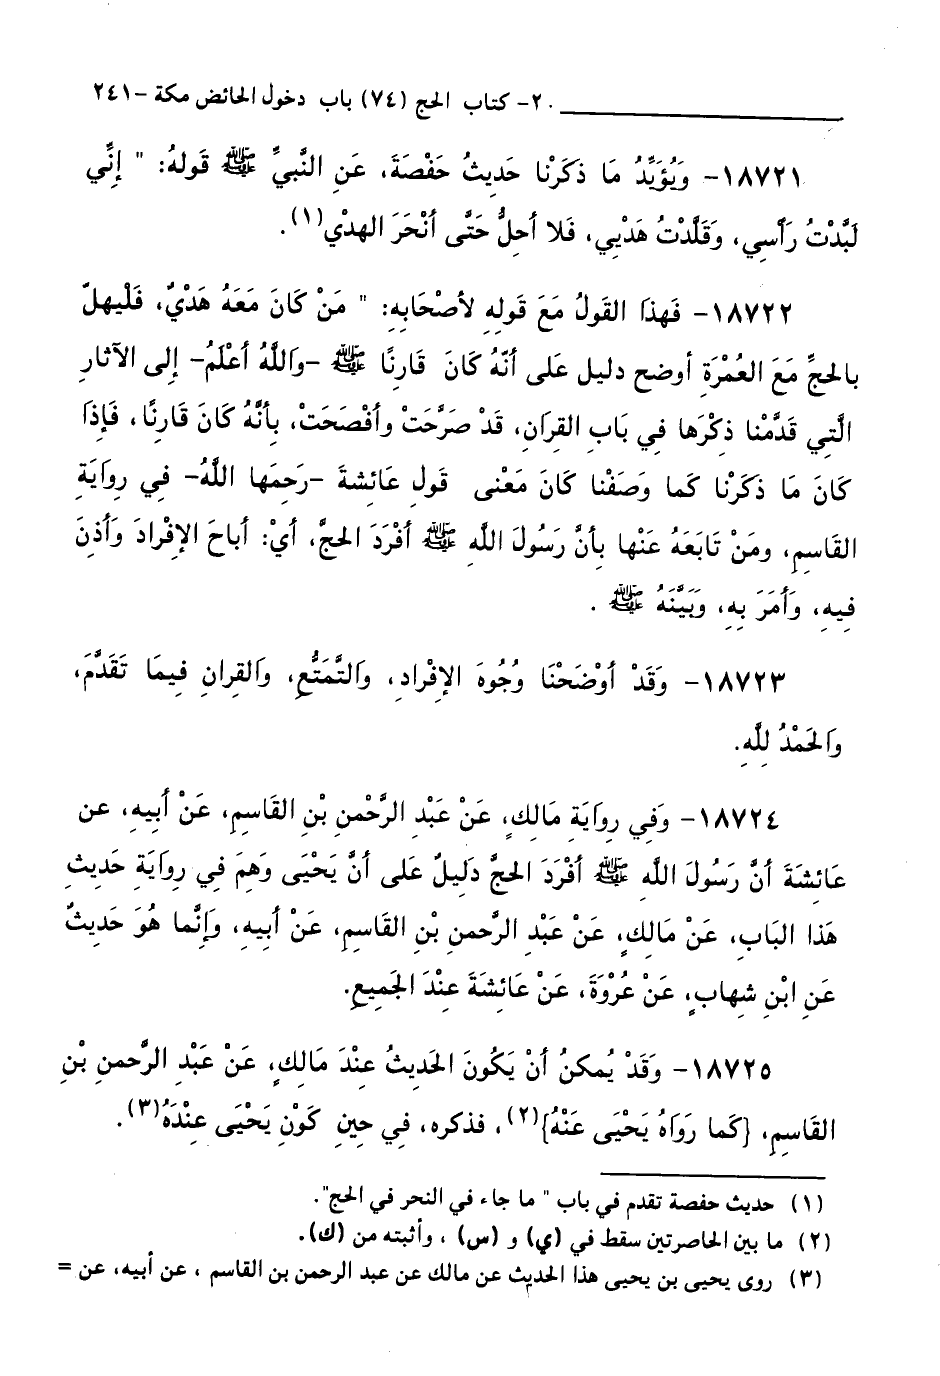 ٢٠- كتاب الحج (٧٤) باب دخول الحائض مكة -٢٤١
١٨٧٢١- وَيُؤَيِّدُ مَا ذكَرْنا حَديثُ حَفْصَةَ، عَنِ النَّبيِّ ﷺ قَولهُ: " إنِّي
لَبَّدْتُ رَأسِي، وَقَلَّدْتُ هَدْيِي، فَلا أحِلُّ حَتَّى أنْحَرَ الهدْي(١).
١٨٧٢٢- فَهذا القَولُ مَعَ قَولهِ لأصْحَابِهِ: " مَنْ كَانَ مَعَهُ هَدْيٌ، فَلْيهلّ
بالحَجِّ مَعَ العُمْرَةِ أوضح دليل عَلى أنّهُ كَانَ قَارِنًا ﷺ -وَاللَّهُ أعْلَمُ- إلى الآثارِ
الَّتِي قَدَّمْنا ذِكْرَها فِي بَابِ القِرآنِ، قَدْ صَرَّحَتْ وأفْصَحَتْ، بأنَّهُ كَانَ قَارِنًا، فَإِذَا
كَانَ مَا ذكَرْنا كَما وَصَفْنا كَانَ مَعْنى قَولِ عَائشةَ -رَحِمَها اللَّهُ- فِي رِوَايَةِ
القَاسِمِ، ومَنْ تَابَعَهُ عَنْها بأنَّ رَسُولَ اللهِ ﷺ أفْرَدَ الحَجَّ، أيْ: أباحَ الإفْرادَ وَأذِنَ
فِيهِ، وَأمَرَ بِهِ، وَبَيَّنَهُ ﷺ .
١٨٧٢٣- وَقَدْ أوْضَحْنَا وُجُوهَ الإفْرادِ، وَالتَّمَتُّعِ، وَالقِرانِ فِيمَا تَقَدَّمَ،
وَالحَمْدُ لِلَّهِ.
١٨٧٢٤- وَفِي رِوايَةِ مَالكٍ، عَنْ عَبْدِ الرَّحْمنِ بْنِ القَاسِمِ، عَنْ أبِيهِ، عن
عَائِشَةَ أنَّ رَسُولَ اللَّهِ ﷺ أفْرَدَ الحجَّ دَليلٌ عَلى أنَّ يَحْيَى وَهِمَ فِي رِوَايَةِ حَديثِ
هَذا البَابِ، عَنْ مَالكٍ، عَنْ عَبْدِ الرَّحمنِ بْنِ القَاسِمِ، عَنْ أبِيهِ، وَإنَّما هُوَ حَديثٌ
عَنِ ابْنِ شِهابٍ، عَنْ عُرْوَةَ، عَنْ عَائِشَةَ عِنْدَ الجَمِيعِ.
١٨٧٢٥- وَقَدْ يُمكنُ أنْ يَكُونَ الحَديثُ عِنْدَ مَالِكٍ، عَنْ عَبْدِ الرَّحمنِ بْنِ
القَاسِمِ، {كَما رَوَاهُ يَحْيَى عَنْهُ}(٢)، فذكره، فِي حِينِ كَوْنِ يَحْيَى عِنْدَهُ(٣).
(١) حديث حفصة تقدم في باب " ما جاء في النحر في الحج".
(٢) ما بين الحاصرتين سقط في (ي) و (س) ، وأثبته من (ك).
(٣) روى يحيى بن يحيى هذا الحديث عن مالك عن عبد الرحمن بن القاسم ، عن أبيه، عن =